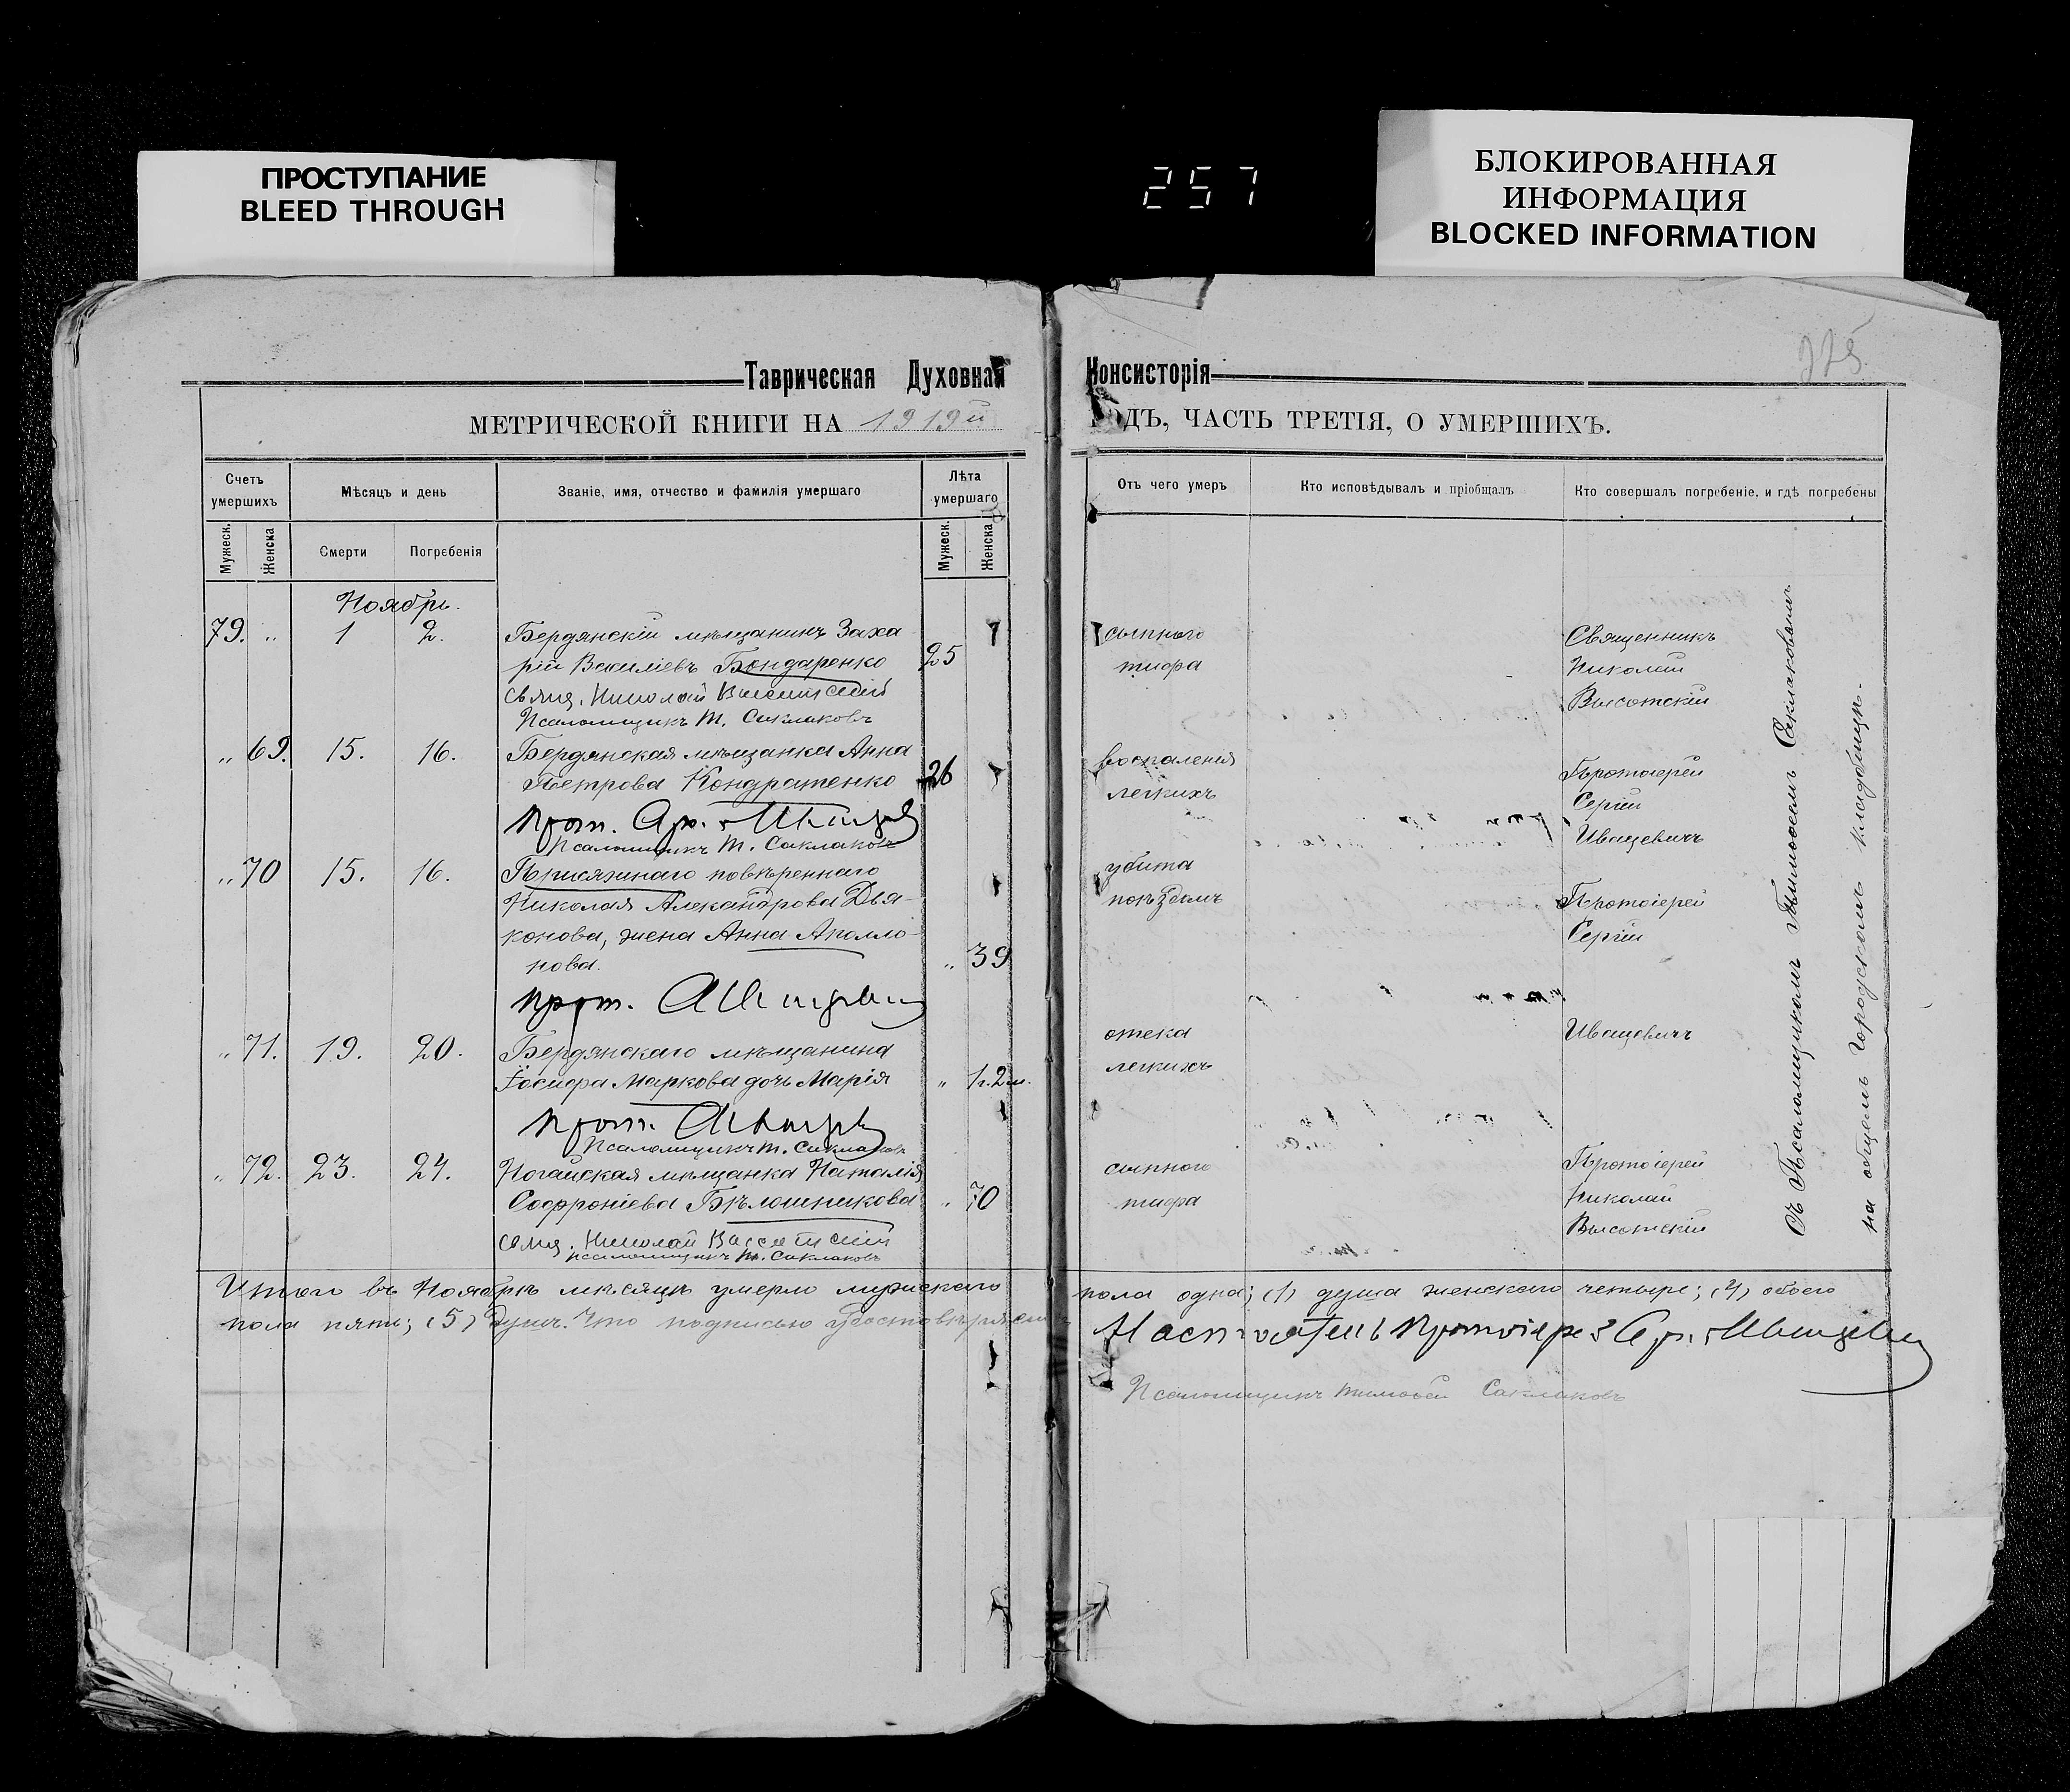 ПРОСТУПАНИЕ
BLEED THROUGH
257
БЛОКИРОВАННАЯ
ИНФОРМАЦИЯ
BLOCKED INFORMATION
Таврическая Духовная Консисторія
МЕТРИЧЕСКОЙ КНИГИ НА 1919й ГОДЪ, ЧАСТЬ ТРЕТІЯ, О УМЕРШИХЪ.
Счетъ умершихъ
Мужеск.
Женска
Мѣсяцъ и день
Смерти
Погребенія
Званіе, имя, отчество и фамилія умершаго
Лѣта умершаго
Мужеск.
Женска
Отъ чего умеръ
Кто исповѣдывалъ и пріобщалъ
Кто совершалъ погребеніе, и гдѣ погребены
Ноябрь.
79. „ 1 2. Бердянскій мѣщанинъ Заха
рій Василіевъ Бондаренко 25
Свящ. Николай Высотскій
Псаломщикъ Т. Саклаковъ
сыпного
тифа
Священникъ
Николай
Высотскій
„ 69. 15. 16. Бердянская мѣщанка Анна
Петрова Кондратенко 26
Прот. Ивацевич
Псаломщикъ Т. Саклаковъ
воспаленія
легкихъ
Протоіерей
Сергій
Ивацевичъ
„ 70 15. 16. Присяжнаго повѣреннаго
Николая Александрова Дья-
конова, жена Анна Аполло-
нова. „ 39
Прот. Ивацевич
убита
поѣздомъ
Протоіерей
Сергій
Ивацевичъ
„ 71. 19. 20. Бердянскаго мѣщанина
Іосифа Маркова дочь Марія „ 1г. 2м.
Прот.
Псаломщикъ Т. Саклаковъ
отека
легкихъ
„ 72. 23. 24. Ногайская мѣщанка Наталія
Софроніева Бѣлошникова „ 70
Свящ. Николай Высотскій
псаломщикъ Т. Саклаковъ
сыпного
тифа
Протоіерей
Николай
Высотскій
Съ Псаломщикомъ Тимофеемъ Саклаковымъ
на общемъ городскомъ кладбищѣ.
Итого въ Ноябрѣ мѣсяцѣ умерло мужскаго пола одна; (1) душа женскаго четыре; (4) обоего
пола пять; (5) душъ. Что подписью удостовѣряемъ
Настоятель Протоіерей Ивацевич
Псаломщикъ Тимофей Саклаковъ